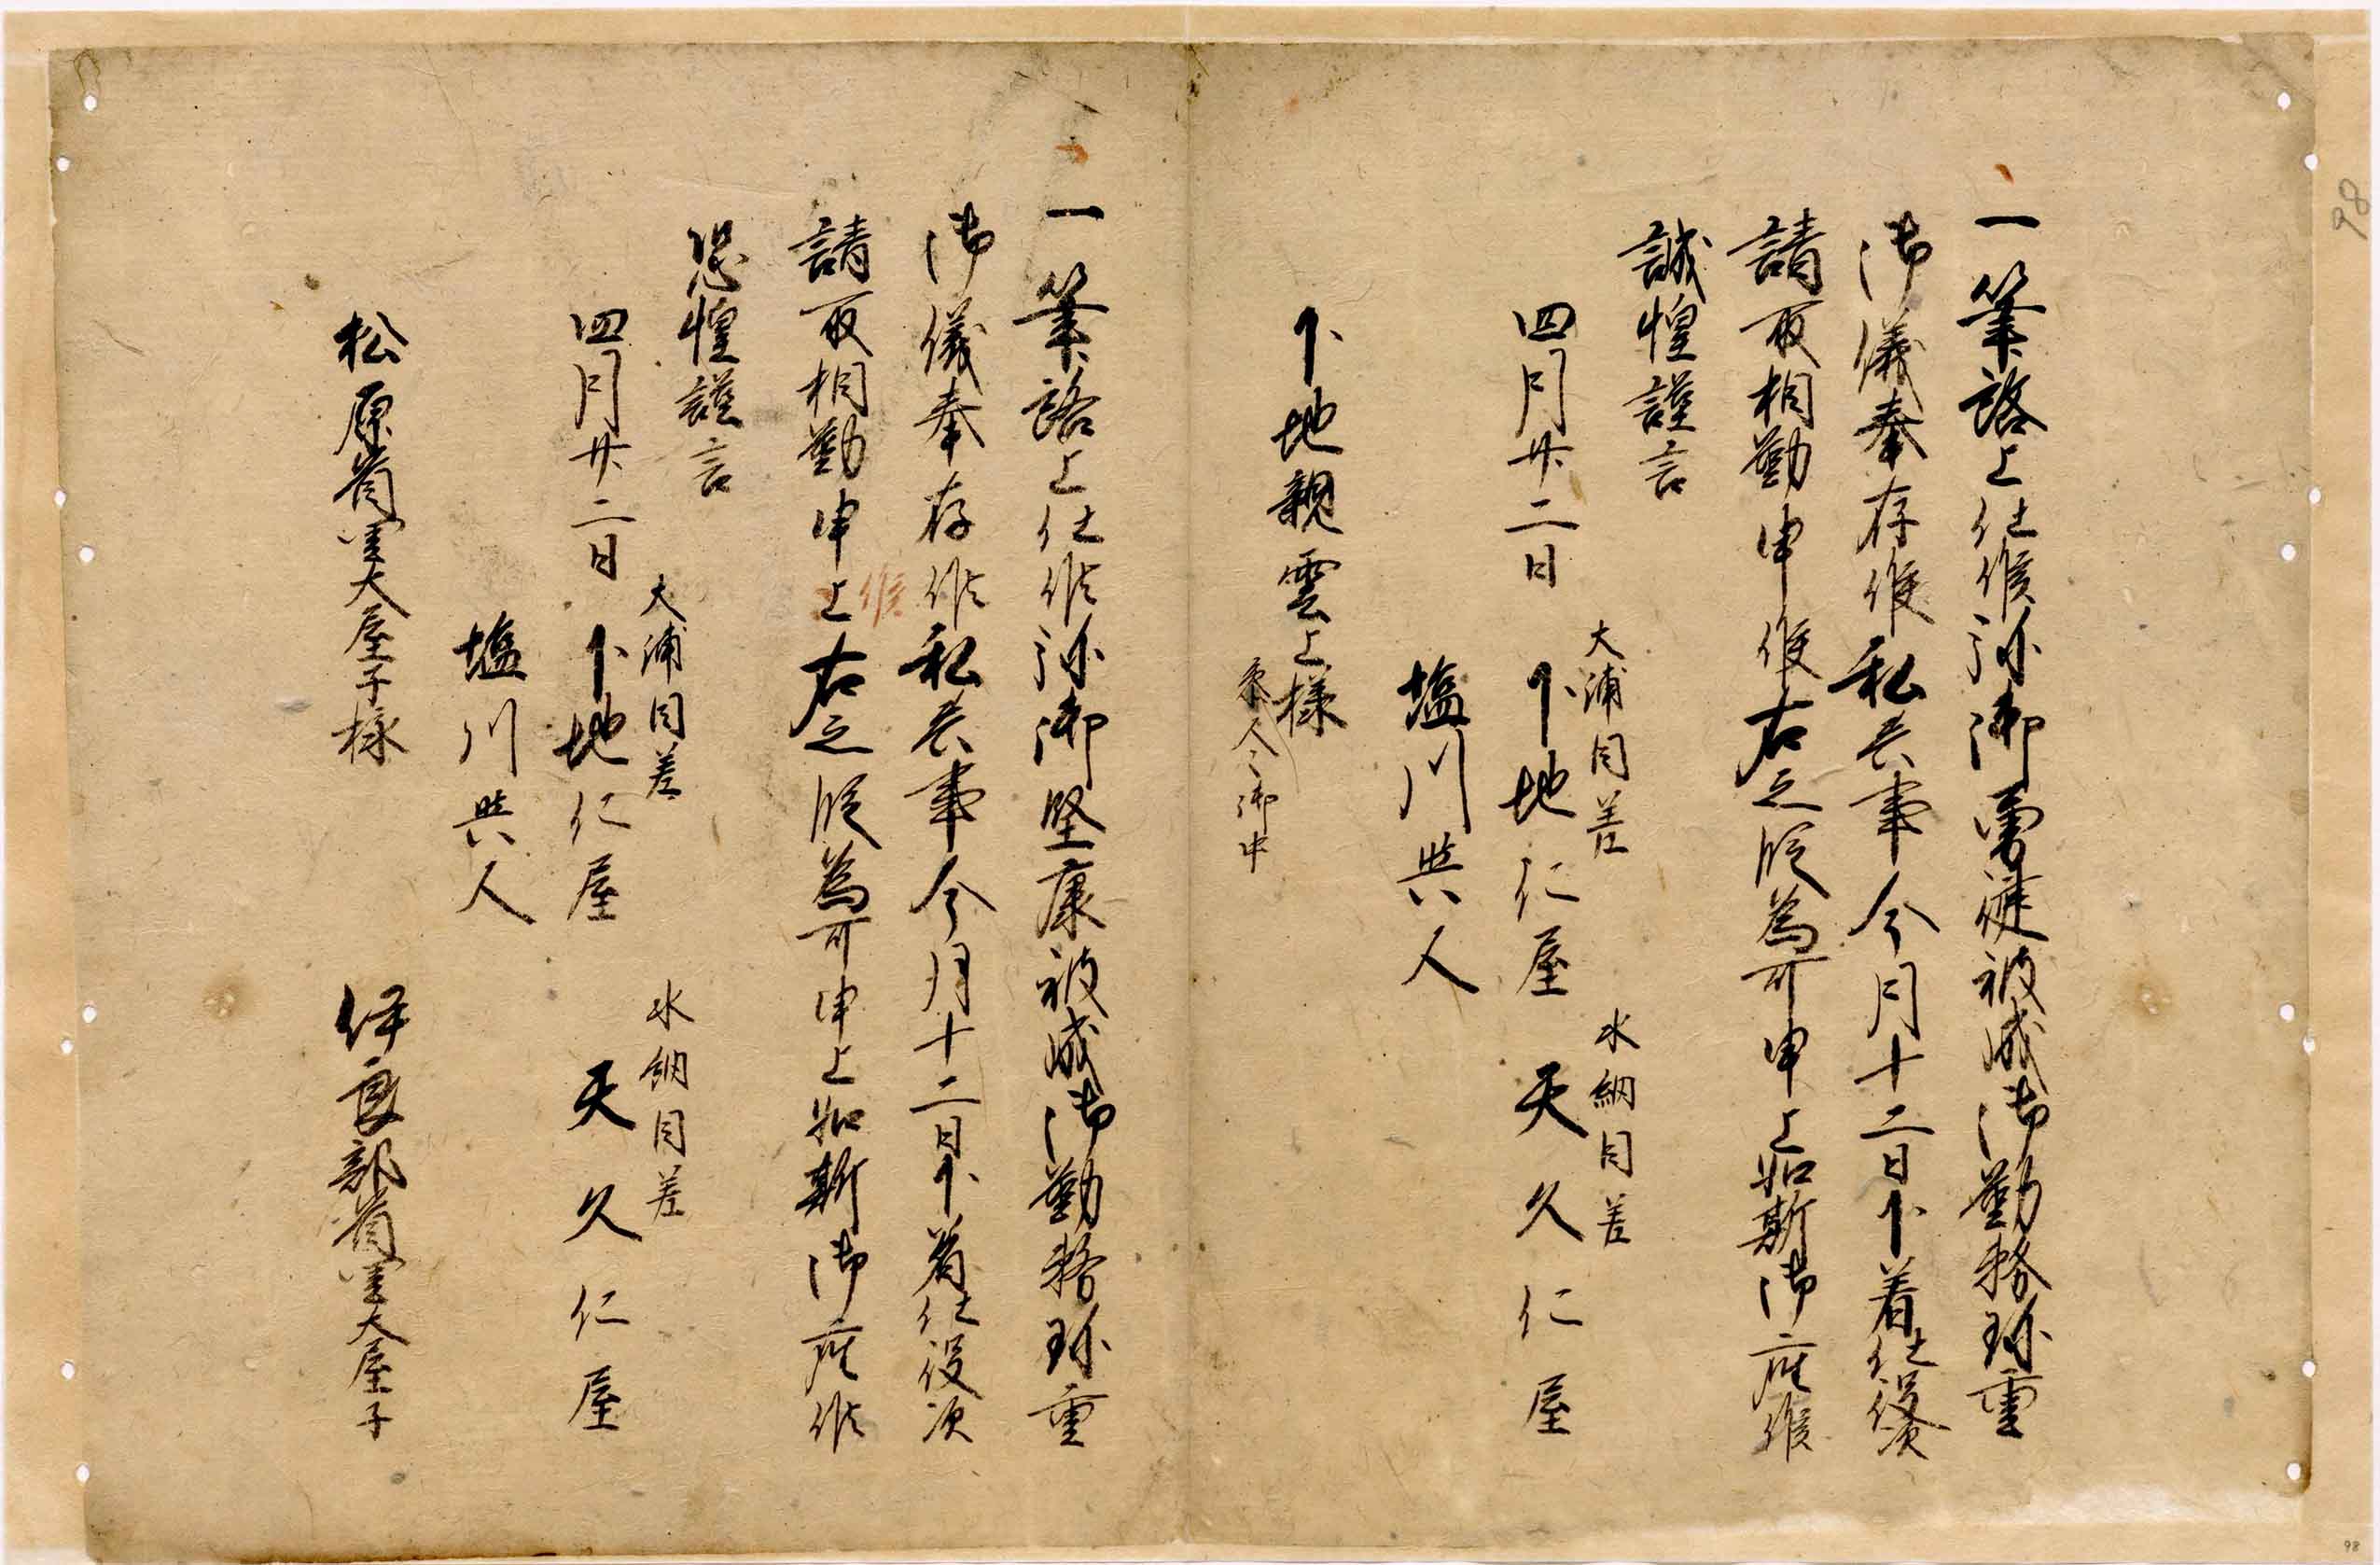 一筆啓上仕候弥御勇健被成御勤務珍重
御儀奉存候私共事今月十二日下着仕役次
請取相勤申候右之段為可申上如斯御座候
誠惶謹言
大浦目差 水納目差
四月廿二日 下地仁屋 天久仁屋
塩川与人
下地親雲上様
参人々御中
一筆啓上仕候弥御堅康被成御勤務珍重
御儀奉存候私共事今月十二日下着仕役次
請取相勤申上候右之段為可申上如斯御座候
恐惶謹言
大浦目差 水納目差
四月廿二日 下地仁屋 天久仁屋
塩川与人
松原首里大屋子様 伊良部首里大屋子
98
98